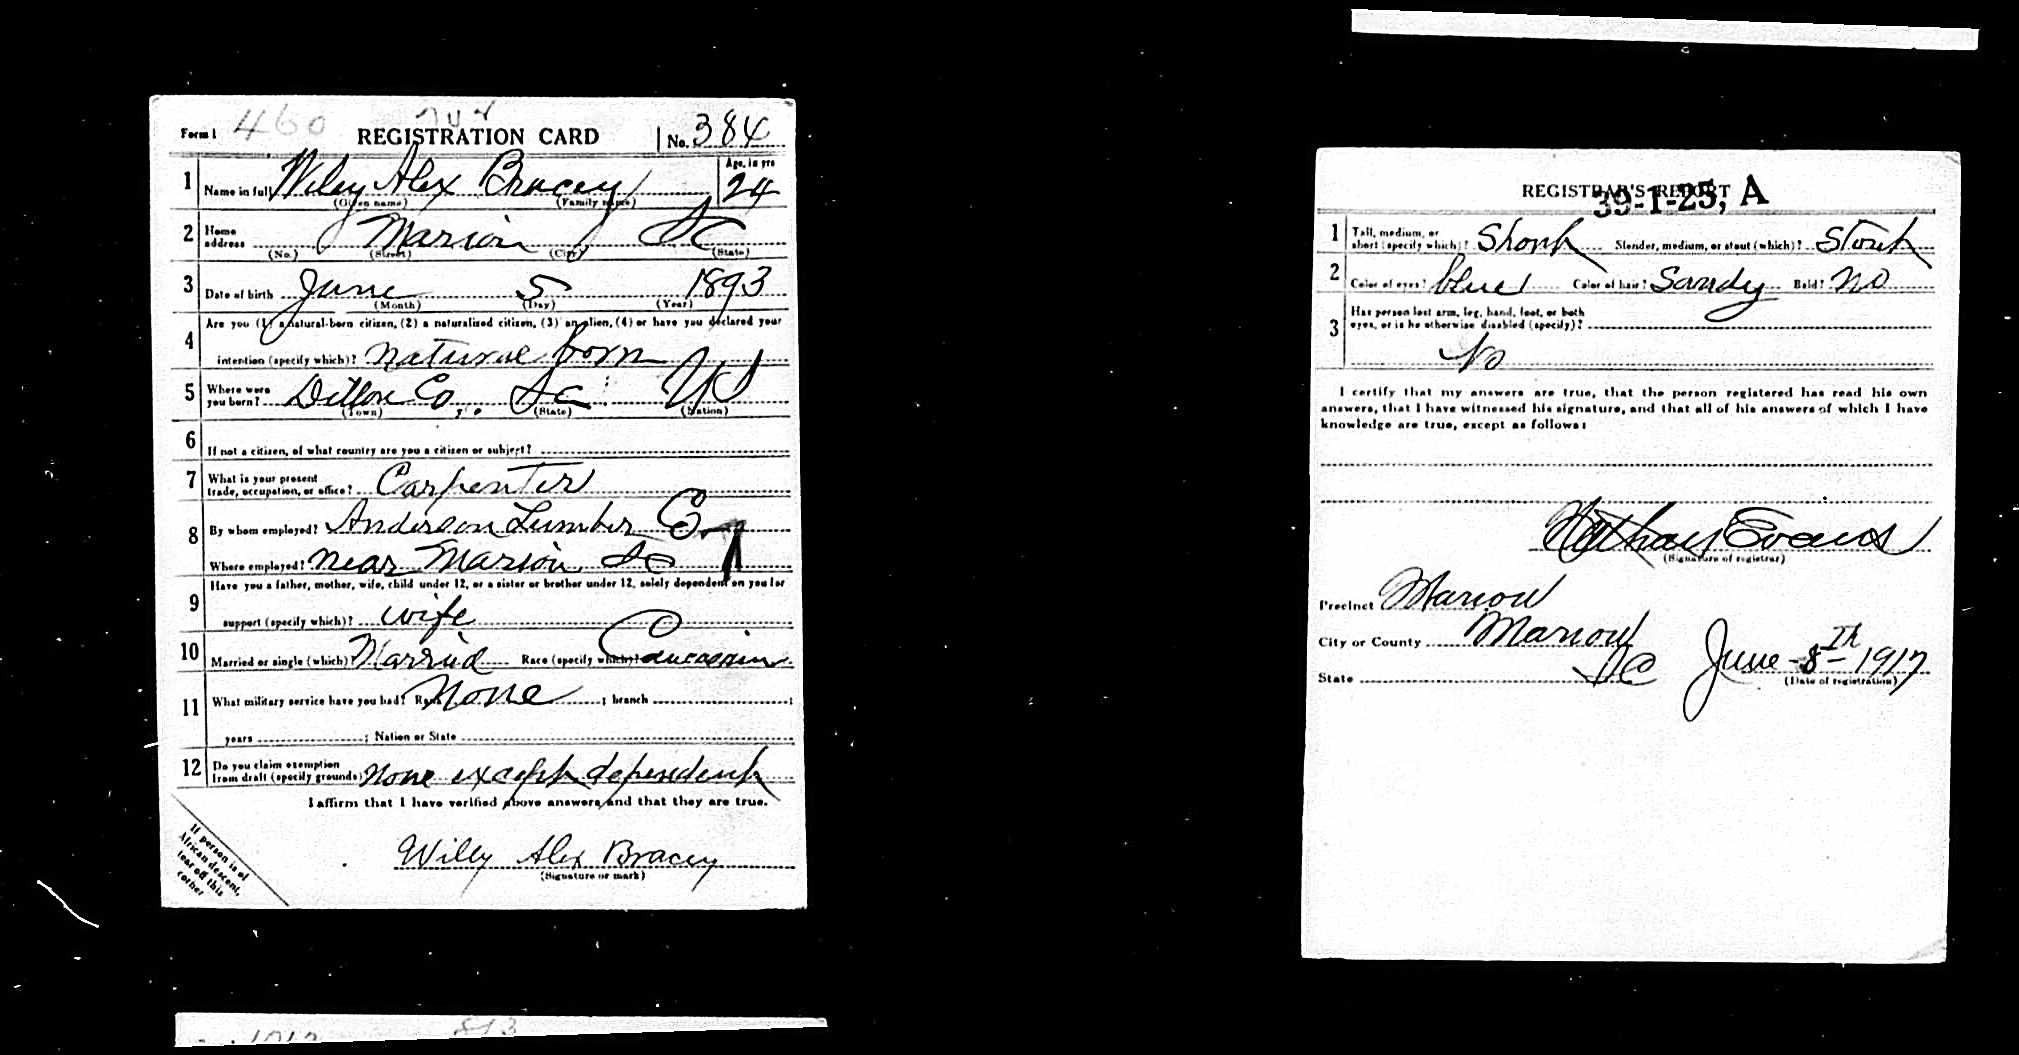 Form 1 460 REGISTRATION CARD No. 384
1 Name in full Wiley Alex Bracey Age, in yrs 24
(Given name) (Family name)
2 Home address Marion SC
(No.) (Street) (City) (State)
3 Date of birth June 5 1893
(Month) (Day) (Year)
4 Are you (1) a natural-born citizen, (2) a naturalized citizen, (3) an alien, (4) or have you declared your
intention (specify which)? natural born
5 Where were you born? Dillon Co SC US
(Town) (State) (Nation)
6 If not a citizen, of what country are you a citizen or subject?
7 What is your present trade, occupation, or office? Carpenter
8 By whom employed? Anderson Lumber Co
Where employed? near Marion SC
9 Have you a father, mother, wife, child under 12, or a sister or brother under 12, solely dependent on you for
support (specify which)? wife
10 Married or single (which)? Married Race (specify which)? Caucasian
11 What military service have you had? Rank None ; branch ;
years ; Nation or State
12 Do you claim exemption from draft (specify grounds) None except dependent
I affirm that I have verified above answers and that they are true.
Willy Alex Bracey
(Signature or mark)
If person is of
African descent,
tear off this
corner
REGISTRAR'S REPORT
39-1-25, A
1 Tall, medium, or short (specify which)? Short Slender, medium, or stout (which)? Stout
2 Color of eyes? blue Color of hair? Sandy Bald? No
3 Has person lost arm, leg, hand, foot, or both
eyes, or is he otherwise disabled (specify)?
No
I certify that my answers are true, that the person registered has read his own
answers, that I have witnessed his signature, and that all of his answers of which I have
knowledge are true, except as follows:
Evans
(Signature of registrar)
Precinct Marion
City or County Marion
State SC June 8th 1917
(Date of registration)